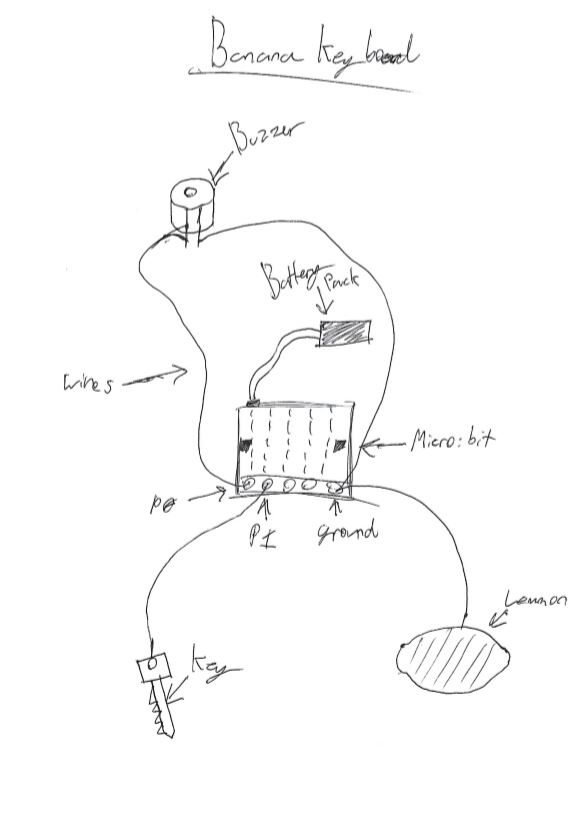 Banana Keyboard
Buzzer
Battery Pack
Wires
Micro:bit
P0
P1
Ground
Lemmon
Key